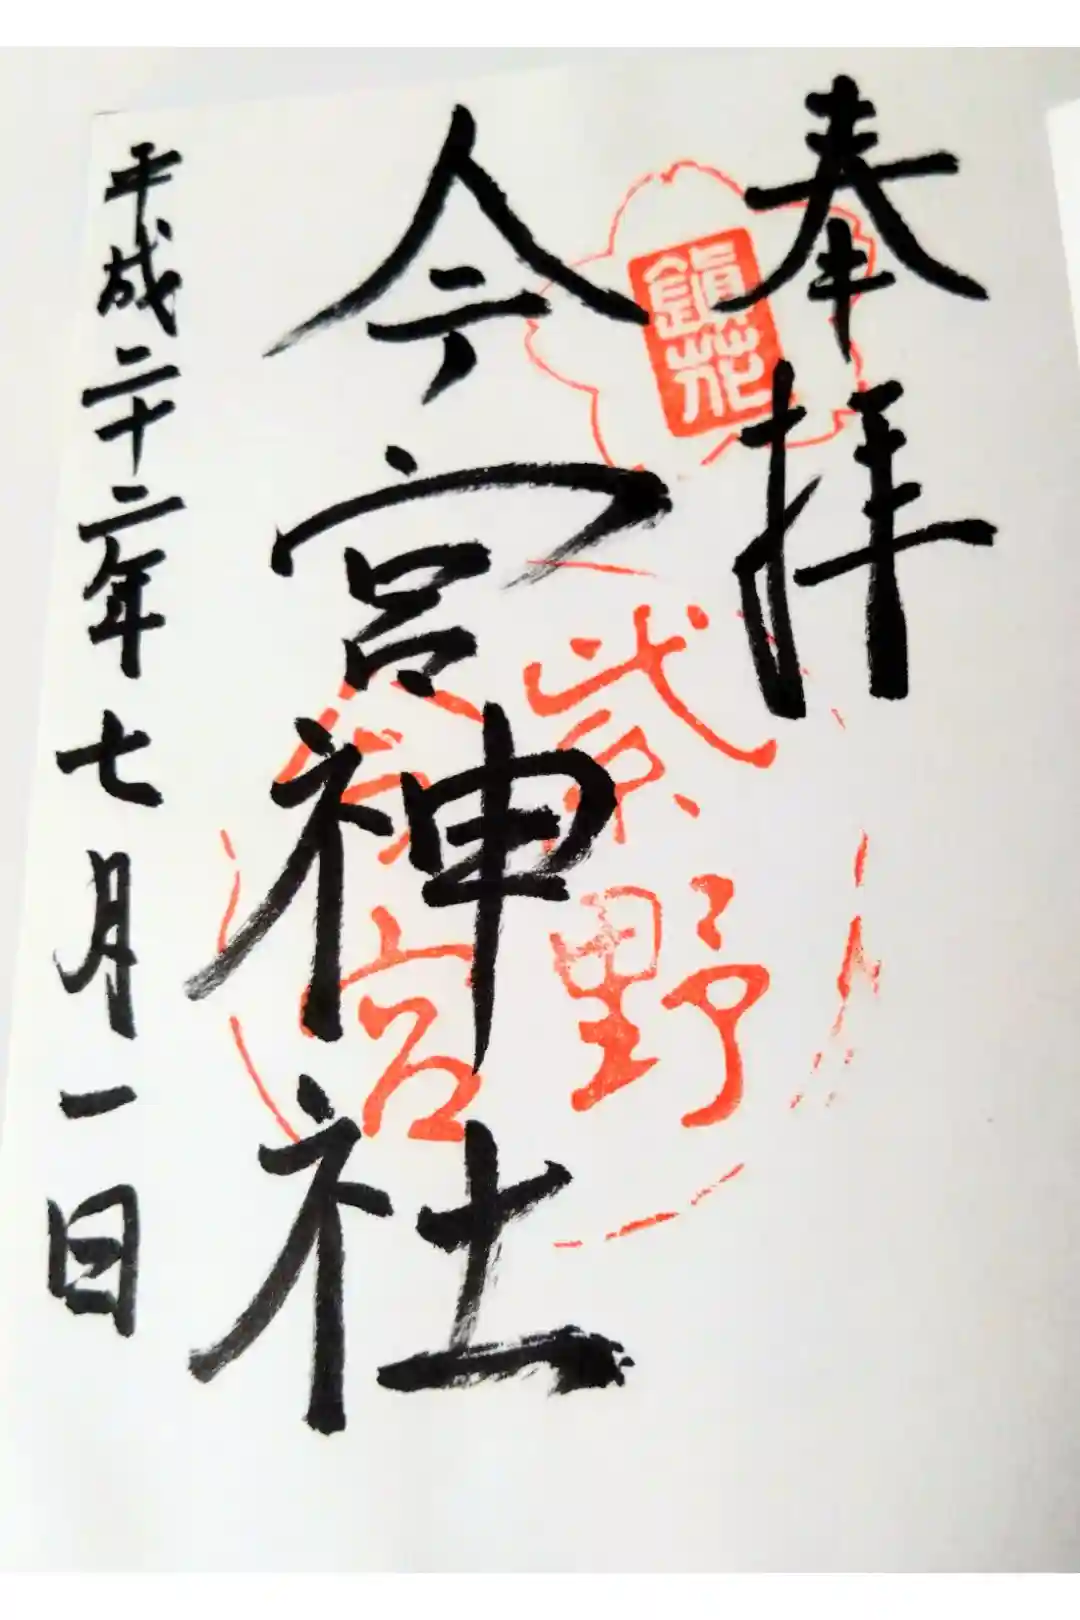 奉拝
鎮花
紫野
今宮
今宮神社
平成二十二年七月一日